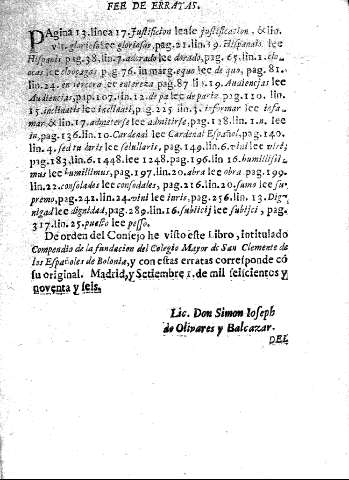 FEE DE ERRATAS.
PAgina 13. linea 17. Iustificion lease justificacion, & lin.
glorioso lee gloriosas, pag. 21. lin. 19. Hispanais lee
Hispanis pag. 38. lin. 7. adorado lee dorado, pag. 65. lin. 1.
ocas lee pag. 76. in marg. equo lee de quo, pag. 81.
lin. 24. en tercera lee entereza pag. 87 lin. 19. Audiencias lee
Audiencias, pap. 107. lin. 12. de pa lee de parte. pag. 120. lin.
15. inclinatis lee pag. 225 lin. informar lee
mar & lin. 17. admeterse lee admitirse, pag. 128. lin. 1. u. lee
in, pag. 136. lin. 10. Cardenal lee Cardenal Español, pag. 140.
lin. 4. sed tu daris lee pag. 149. lin. 6. vini lee
pag. 183. lin. 6. 1448. lee 1248. pag. 196. lin 16.
mus lee humillimus, pag. 197. lin. 20. abra lee obra pag. 199.
lin. 22. consolades lee consodales, pag. 216. lin. 20. sumo lee su-
premo, pag. 241. lin. 24. vini lee iuris, pag. 256. lin. 13. Dig-
nigad lee dignidad, pag. 289. lin. 16. subiicij lee subijci, pag.
317. lin. 25. puesto lee peso.
De orden del Consejo he visto este Libro, intitulado
Compendio de la fundacion del Colegio Mayor de San Clemente de
los Españoles de Bolonia, y con estas erratas corresponde cõ
su original. Madrid, y Setiembre 1. de mil seiscientos y
noventa y seis.
Lic. Don Simon Ioseph
de Olivares y Balcazar.
DEL